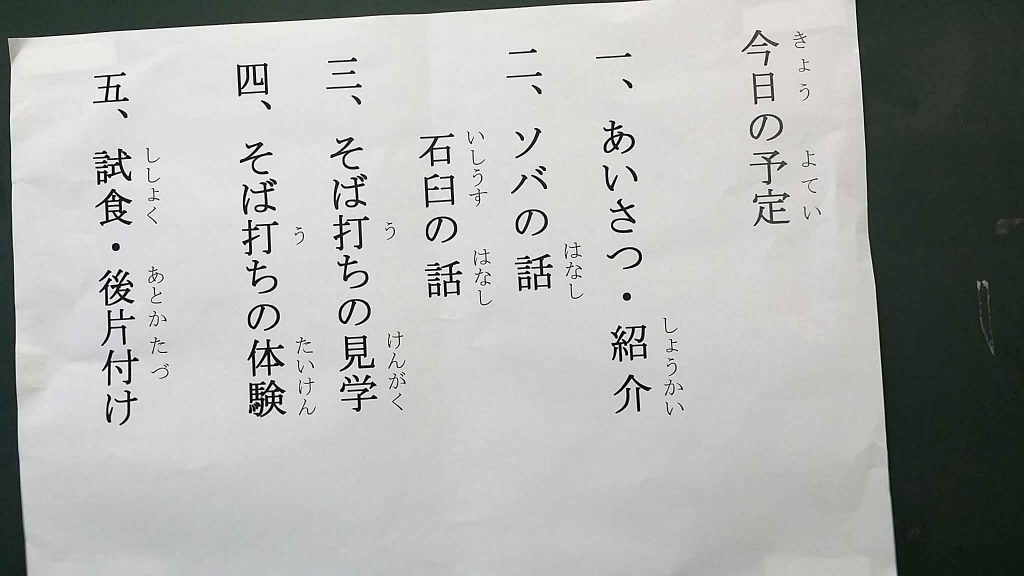 今日の予定
きょう よてい
一、あいさつ・紹介
しょうかい
二、ソバの話
はなし
石臼の話
いしうす はなし
三、そば打ちの見学
う けんがく
四、そば打ちの体験
う たいけん
五、試食・後片付け
ししょく あとかたづ